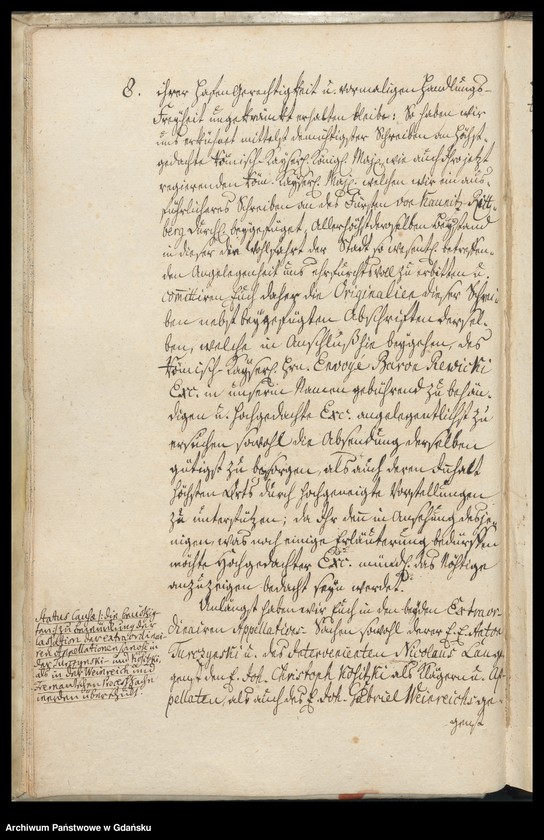 8. ihrer Hafen Gerechtigkeit u. vormaligen Handlungs-
Freyheit ungekränkt erhalten bleibe: So haben wir
uns erkühnet mittelst demüthigster Schreiben an Höchst-
gedachte Römisch-Kayserl. Königl. Maj. wie auch Ihro jetzt
regierenden Röm. Kayserl. Maj. welchen wir ein aus-
führlicheres Schreiben an des Fürsten von Kaunitz-Ritt-
berg Durchl. beygefüget, Allerhöchst deroselben Beystand
in dieser die Wohlfahrt der Stadt so wesentl. betreffen-
den Angelegenheit uns ehrfurchtsvoll zu erbitten u.
committiren Euch daher die Originalien dieser Schrei-
ben nebst beygefügten Abschriften dersel-
ben, welche in Anschluß hie beygehen, des
Römisch-Kayserl. Hrn. Envoyé Baron Rewicki
Exc. in unserm Namen gebührend zu behän-
digen u. Hochgedachte Exc. angelegentlichst zu
ersuchen sowohl die Absendung derselben
gütigst zu besorgen, als auch deren Inhalt
höchsten Orts durch hochgeneigte Vorstellungen
zu unterstützen; da Ihr denn in Ansehung desje-
nigen, was noch einige Erläuterung bedürfen
möchte Hochgedachter Exc. mündl. das Nöthige
anzuzeigen bedacht seyn werdet.
Unlängst haben wir Euch in den beyden Extraor-
dinairen Appellations-Sachen sowohl derer E. E. Anton
Turczynski u. des Intervenienten Nicolaus Lang
gegen den E. Joh. Christoph Kositzki als Klägern u. Ap-
pellaten, als auch des E. Joh. Gabriel Weinreichs ge-
gen
Status Causae
der extraordinai-
ren Appellationen sowol in
der Turczynski- und Kositzki,
als in der Weinreich und
Processsache
werden übersandt.
Archiwum Państwowe w Gdańsku